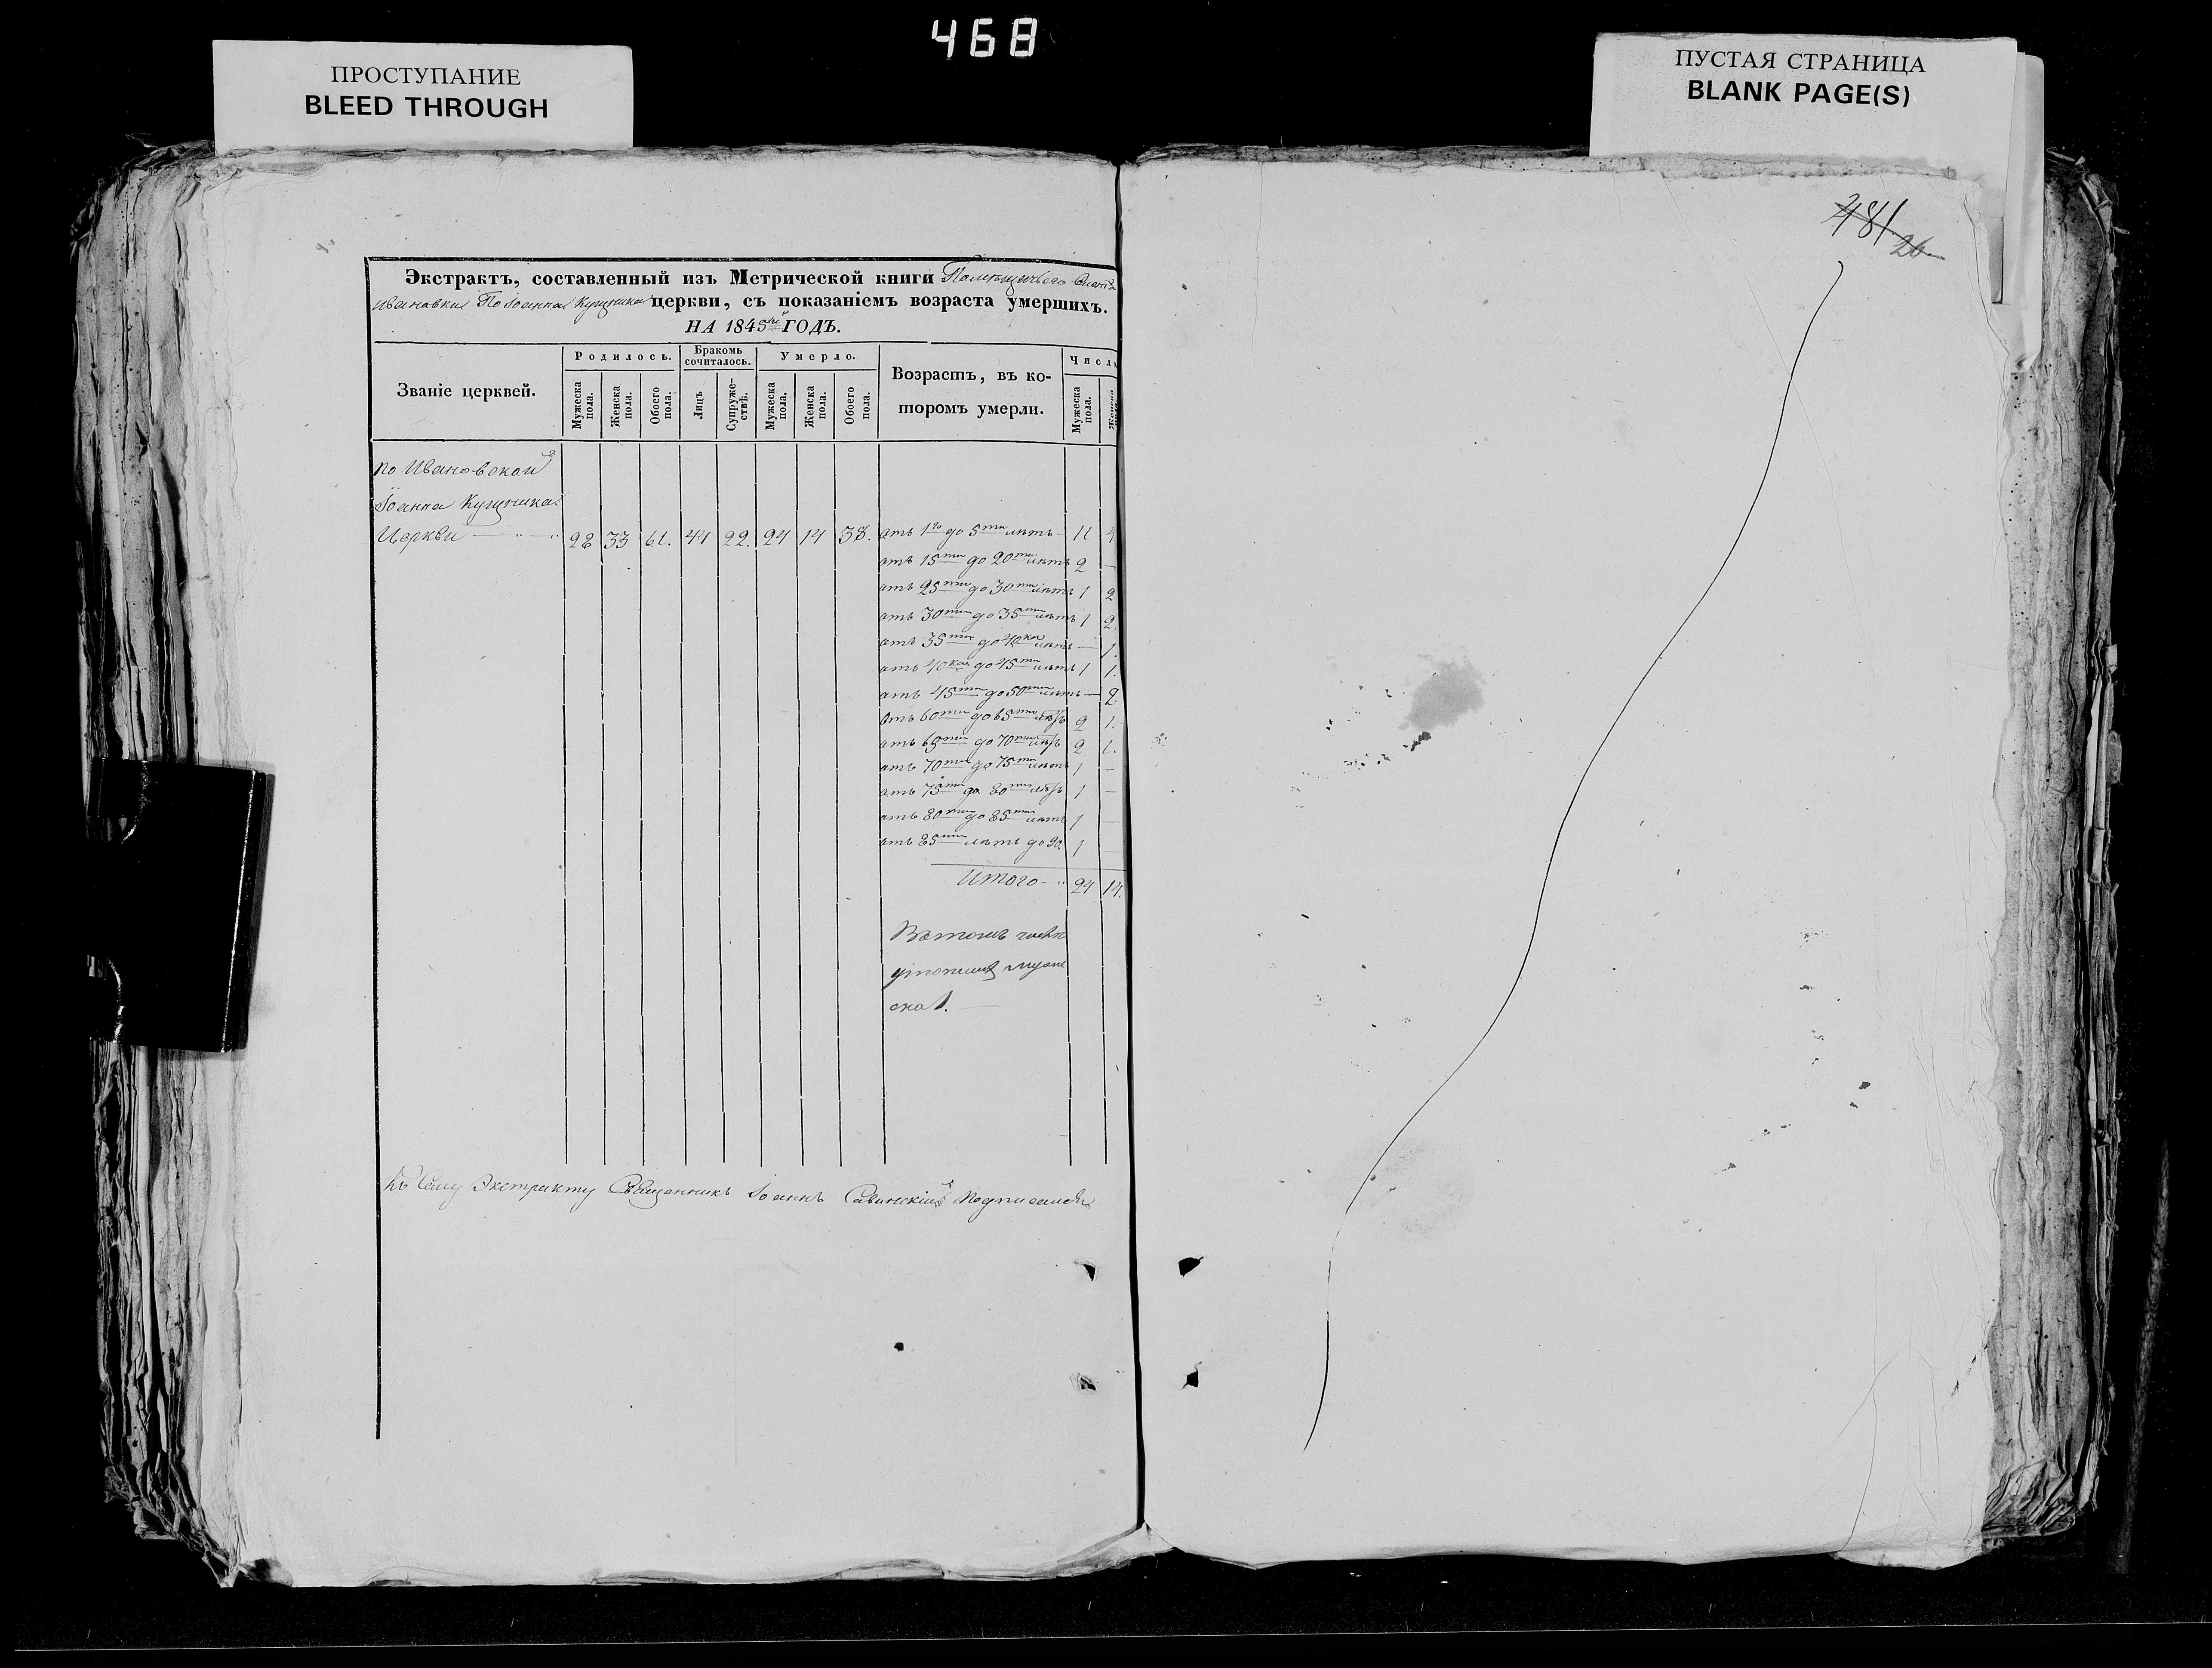 468
ПРОСТУПАНИЕ
BLEED THROUGH
ПУСТАЯ СТРАНИЦА
BLANK PAGE(S)
481
26
Экстрактъ, составленный изъ Метрической книги Помѣщичьего
Ивановки По Іоанна Кущника церкви, съ показаніемъ возраста умершихъ.
НА 1845й ГОДЪ.
Званіе церквей. Родилось. Бракомъ сочиталось. Умерло. Возрастъ, въ которомъ умерли. Число
Мужеска пола. Женска пола. Обоего пола. Лицъ Супружествъ. Мужеска пола. Женска пола. Обоего пола. Мужеска пола. Женска
по Ивановской
Іоанна Кущника
Церкви 28 33 61. 44 22. 24 14 38. отъ 1го до 5ти лѣтъ 11 4
отъ 15ти до 20ти лѣтъ 2 —
отъ 25ти до 30ти лѣтъ 1 2
отъ 30ти до 35ти лѣтъ 1 2.
отъ 35ти до 40ка лѣтъ — 1.
отъ 40ка до 45ти лѣтъ 1 1.
отъ 45ти до 50ти лѣтъ — 2
отъ 60ти до 65ти лѣтъ 2 1.
отъ 65ти до 70ти лѣтъ 2 1.
отъ 70ти до 75ти лѣтъ 1 —
отъ 75ти до 80ти лѣтъ 1 —
отъ 80ти до 85ти лѣтъ 1 —
отъ 85ти лѣтъ до 90. 1 —
Итого 24 14.
Въ томъ числѣ
муже
ска 1.
Къ Сему Экстракту Священникъ Іоаннъ Савинскій подписался